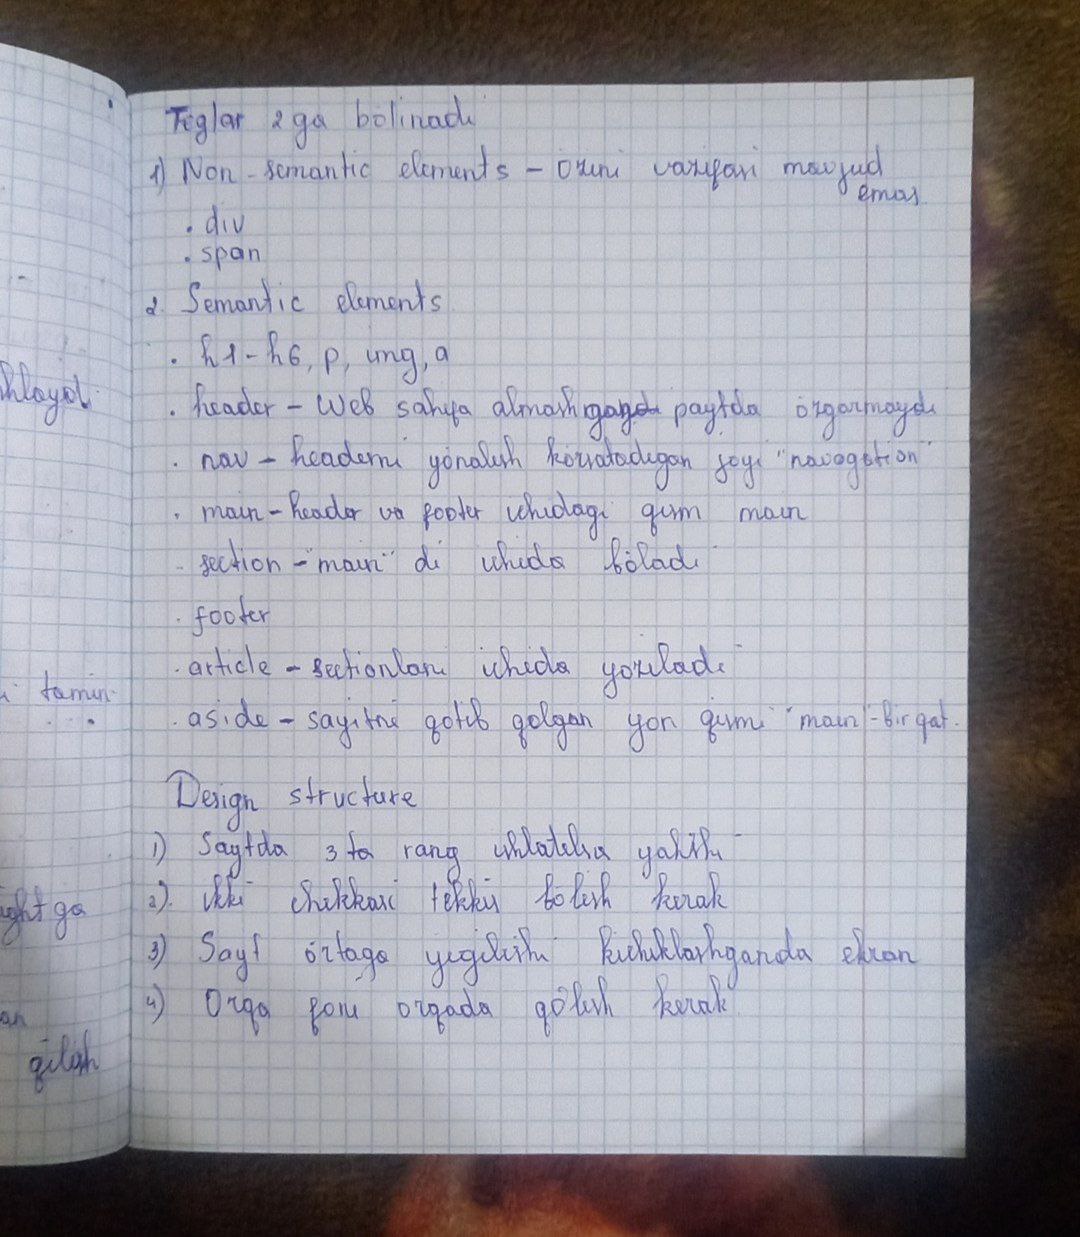 hlayd
tamin
ght ga
an
qilish
Teglar 2 ga bölinadi
1) Non-semantic elements - özini vazifasi mavjud
emas.
• div
• span
2. Semantic elements.
• h1-h6, p, img, a
• header - Web sahifa almash paytda özgarmaydi
• nav - headerni yönalish körsatadigan joyi "navogation"
• main - header va footer ichidagi qism main
- section - "main" di ichida böladi
• footer
• article - sectionlani ichida yoziladi
• aside - sayitni qotib qolgan yon qismi "main"-bir qat.
Design structure
1) Saytda 3 ta rang ishlatilsa yaxshi
2). ikki chekkasi tekkis bölish kerak
3) Sayt örtaga yigilishi kichiklashganda ekran
4) Orqa foni orqada qölish kerak